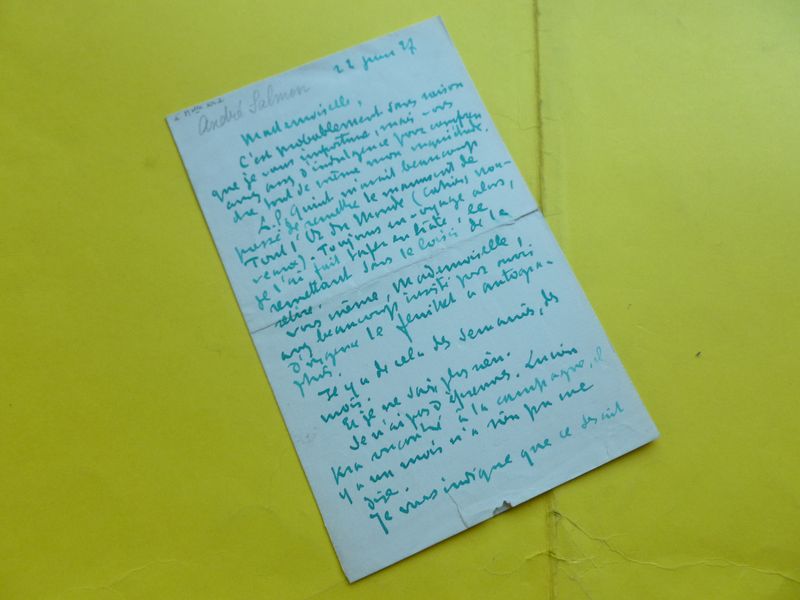 André Salmon
22 juin 27
Mademoiselle,
C'est probablement sans raison
que je vous importune, mais vous
aurez assez d'indulgence pour compren
dre tout de même mon inquiétude.
L.P. Quint m'avait beaucoup
pressé de remettre le manuscrit de
Tout l'Or du Monde (Cahiers nou-
veaux). Toujours en voyage alors,
je l'ai fait taper en hâte, le
remettant sans le loisir de le
relire.
Vous même, Mademoiselle,
avez beaucoup insisté pour avoir
d'urgence le feuillet à autogra-
phier.
Il y a de cela des semaines, des
mois.
Et je ne sais plus rien.
Je n'ai pas d'épreuves. Lucien
Kra rencontré à la campagne, il
y a un mois n'a rien pu me
dire.
Je vous indique que ce serait